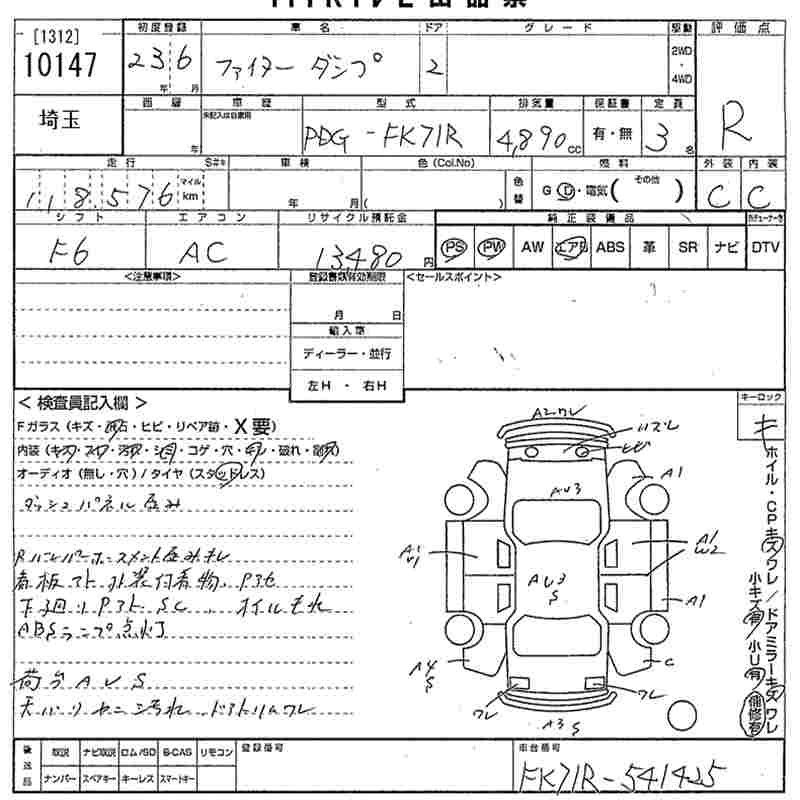 [1312]
10147
埼玉
初度登録 車名 ドア グレード 駆動 評価点
23年 6月 ファイター ダンプ 2 2WD・4WD R
年 車歴 型式 排気量 保証書 定員
未記入は自家用 PDG-FK71R 4,890cc 有・無 3名
走行 S#* 車検 色(Col.No) 燃料 外装 内装
118,576 マイル km 年 月 ( ) 色替 G L・電気 (その他 ) C C
シフト エアコン リサイクル預託金 純正装備品
F6 AC 13,480円 PS PW AW エアB ABS 革 SR ナビ DTV
<注意事項> 登録書類有効期限 <セールスポイント>
月 日
輸入車
ディーラー・並行
左H・右H
<検査員記入欄> キーロック
キ
Fガラス(キズ・飛石・ヒビ・リペア跡・X要)
内装(キズ・スレ・汚れ・シミ・コゲ・穴・切レ・破れ・)
オーディオ(無し・穴)/タイヤ(スタッドレス)
ダッシュパネル歪み
歪みキレ
看板 外装付着物 P36
下廻り サビ SC オイルモレ
ABSランプ点灯
荷台 A U S
天バリ ヤニ汚れ ドアトリムワレ
A2ワレ
ハズレ
ヒビ
A1
AU3
A1 U1
A1 W2
AU3 S
A1
A4 S
C
ワレ
ワレ
A3 S
ホイル・CPキズワレ/ドアミラーキズワレ
小キズ有 小U有 補修有
後送品 取説 ナビ取説 ロム/SD B-CAS リモコン 登録番号 車台番号
ナンバー スペアキー キーレス スマートキー FK71R-541425